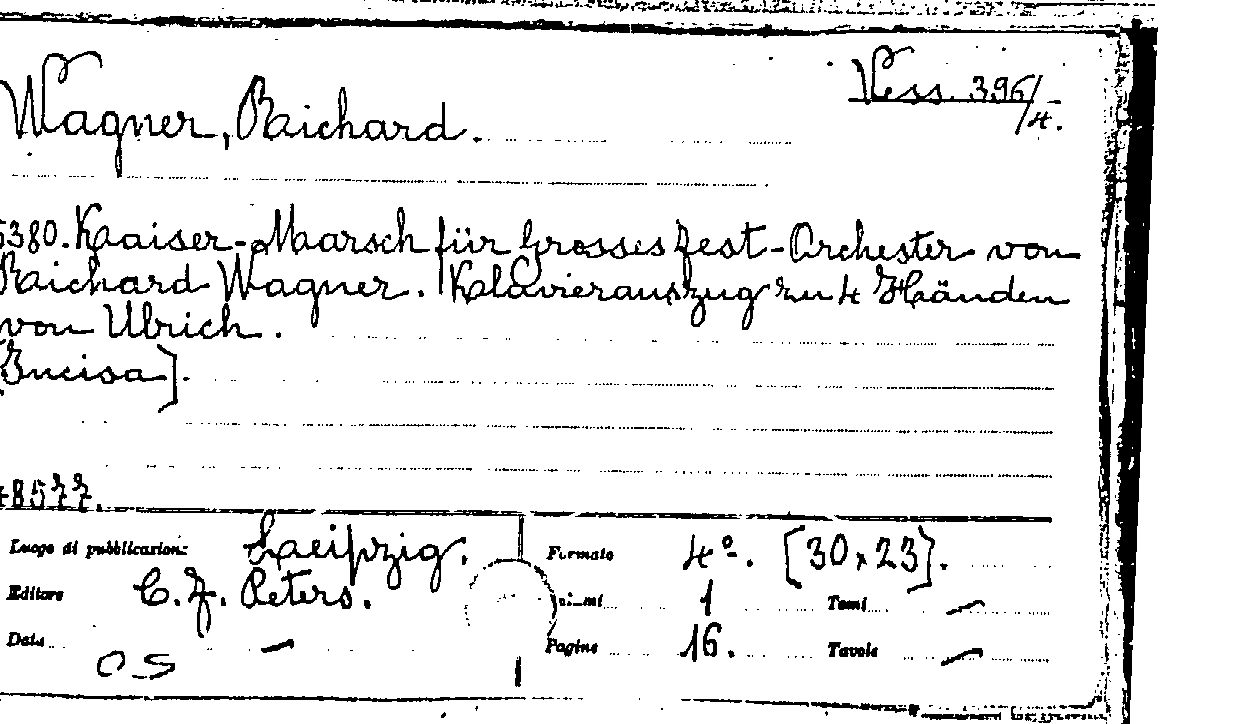 Vess. 396/4.
Wagner, Richard.
5380. Kaiser-Marsch für grosses Fest-Orchester von
Richard Wagner. Klavierauszug zu 4 Händen
von Ulrich.
[Incisa].
48577.
Luogo di pubblicazione Leipzig. Formato 4º. [30x23].
Editore C. F. Peters. 1 Tomi —
Data — Pagine 16. Tavole —
OS